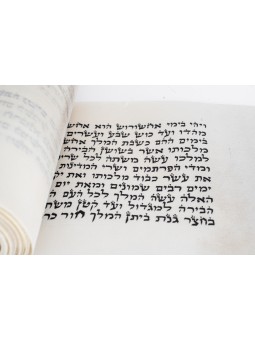 ויהי בימי אחשורוש הוא
מהדו ועד כוש שבע ועשרים
בימים ההם כשבת המלך
מלכותו אשר בשושן הבירה
למלכו עשה משתה לכל
ומדי הפרתמים ושרי המדינות
את עשר כבוד מלכותו ואת
ימים רבים שמונים ומאת יום
האלה עשה המלך לכל העם
הבירה למגדול ועד קטן
בחצר גנת ביתן המלך חור